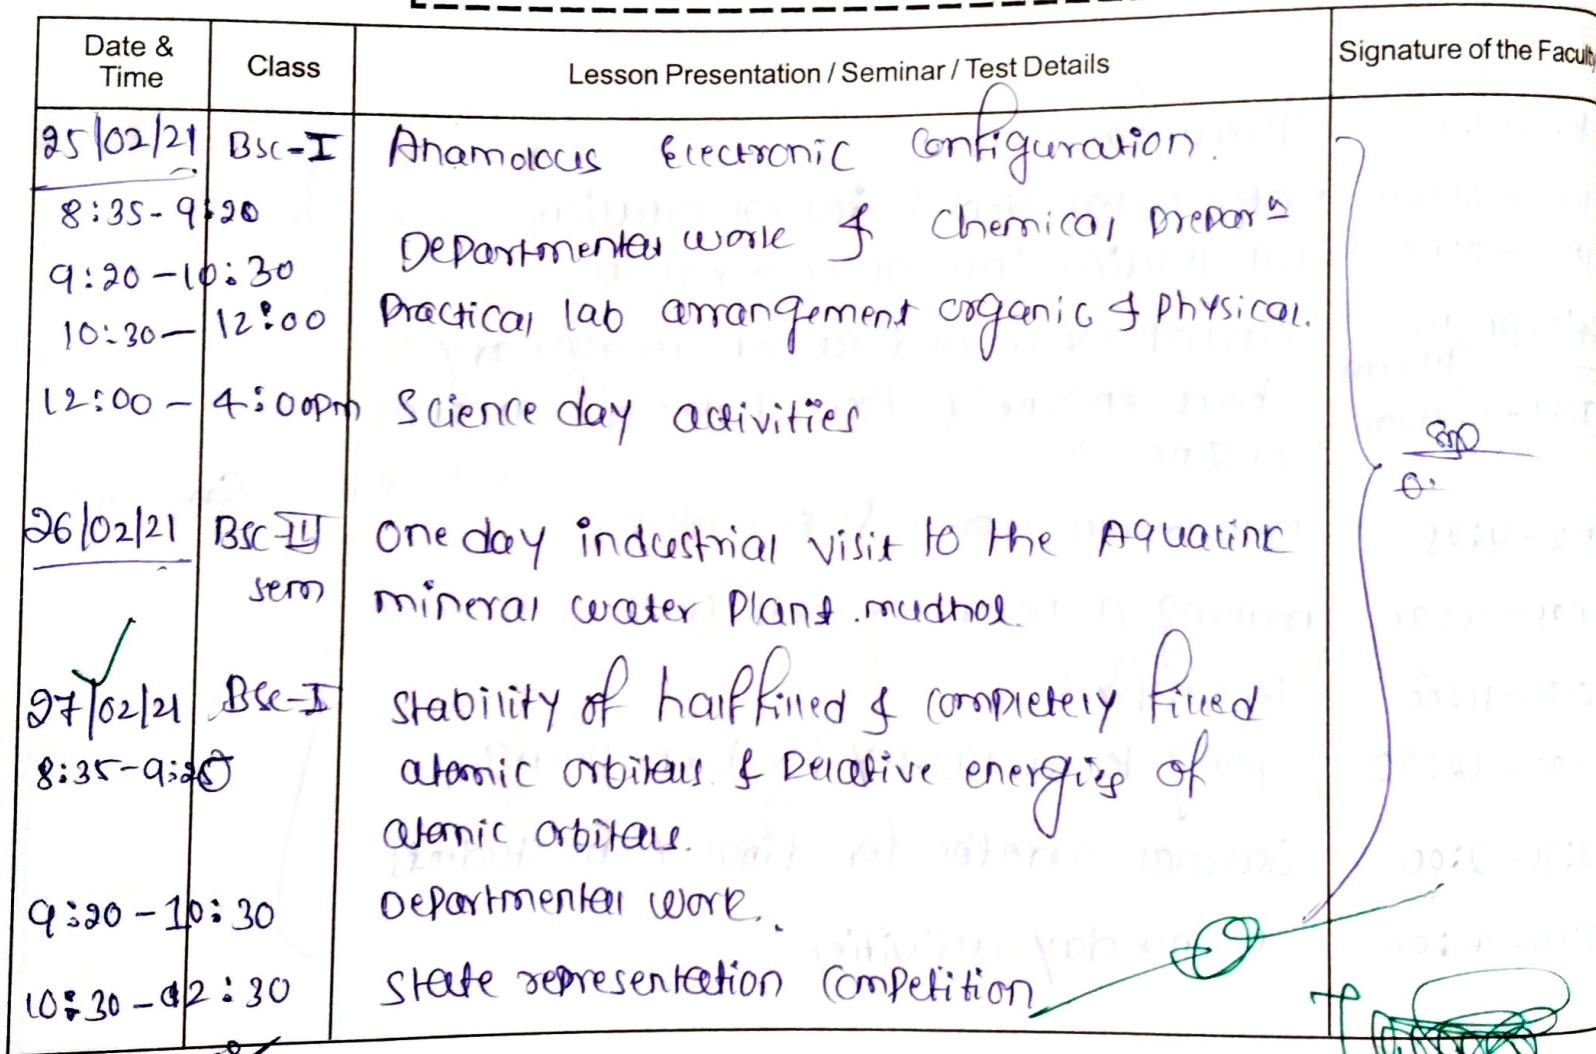 Date & Time Class Lesson Presentation / Seminar / Test Details Signature of the Facult
25/02/21 Bsc-I Anamolous Electronic Configuration.
8:35-9:20 Departmental work & Chemical prepar
9:20-10:30
10:30-12:00 Practical lab arrangement organic & physical.
12:00-4:00pm Science day activities
26/02/21 Bsc II One day industrial visit to the Aqualink
sem mineral water plant. mudhol.
27/02/21 Bsc-I Stability of half filled & completely filled
8:35-9:20 atomic orbitals & Relative energies of
atomic orbitals.
9:20-10:30 Departmental work.
10:30-12:30 State representation Competition